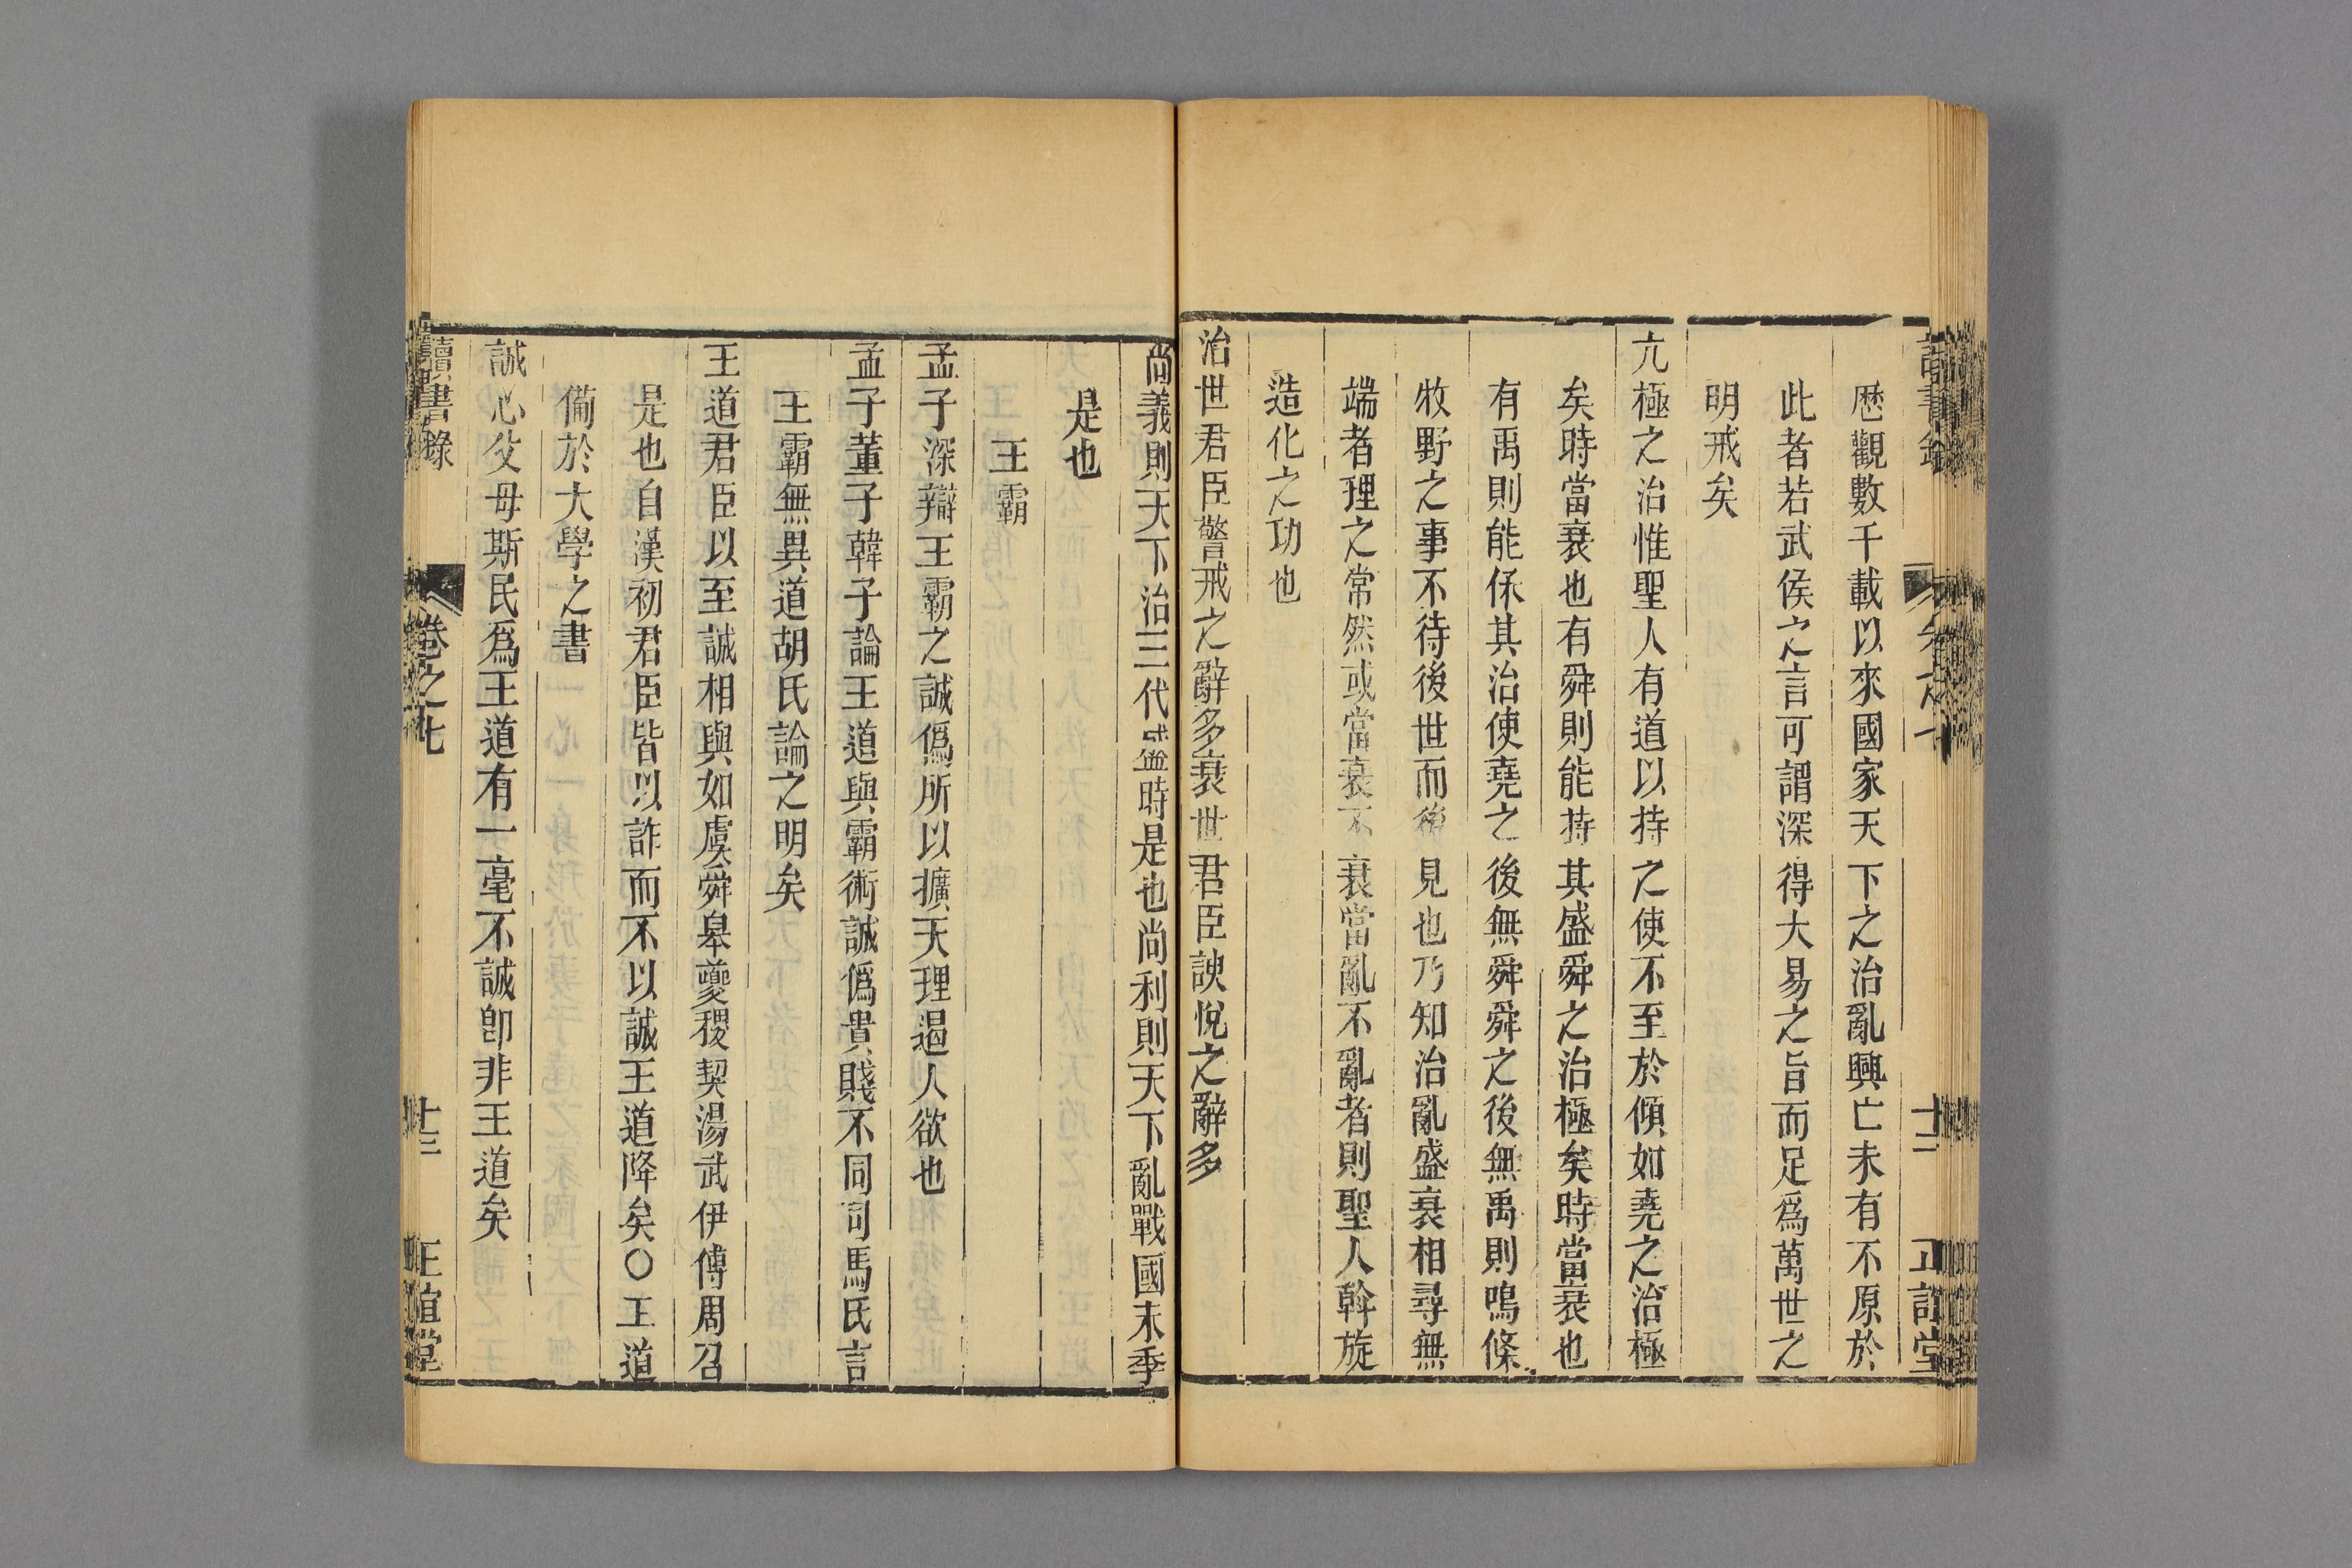 歴觀數千載以來國家天下之治亂興亡未有不原於
此者若武侯之言可謂深得大易之旨而足爲萬世之
明戒矣
亢極之治惟聖人有道以持之使不至於傾如堯之治極
矣時當衰也有舜則能持其盛舜之治極矣時當衰也
有禹則能係其治使堯之後無舜舜之後無禹則鳴條
牧野之事不待後世而後見也乃知治亂盛衰相尋無
端者理之常然或當衰不衰當亂不亂者則聖人斡旋
造化之功也
治世君臣警戒之辭多衰世君臣諛悅之辭多
尚義則天下治三代盛時是也尚利則天下亂戰國末季
是也
王霸
孟子深辯王霸之誠僞所以擴天理遏人欲也
孟子董子韓子論王道與霸術誠僞貴賤不同司馬氏言
王霸無異道胡氏論之明矣
王道君臣以至誠相與如虞舜皋夔稷契湯武伊傅周召
是也自漢初君臣皆以詐而不以誠王道降矣〇王道
備於大學之書
誠心父母斯民爲王道有一毫不誠卽非王道矣
讀書錄 卷之七 十三 正誼堂